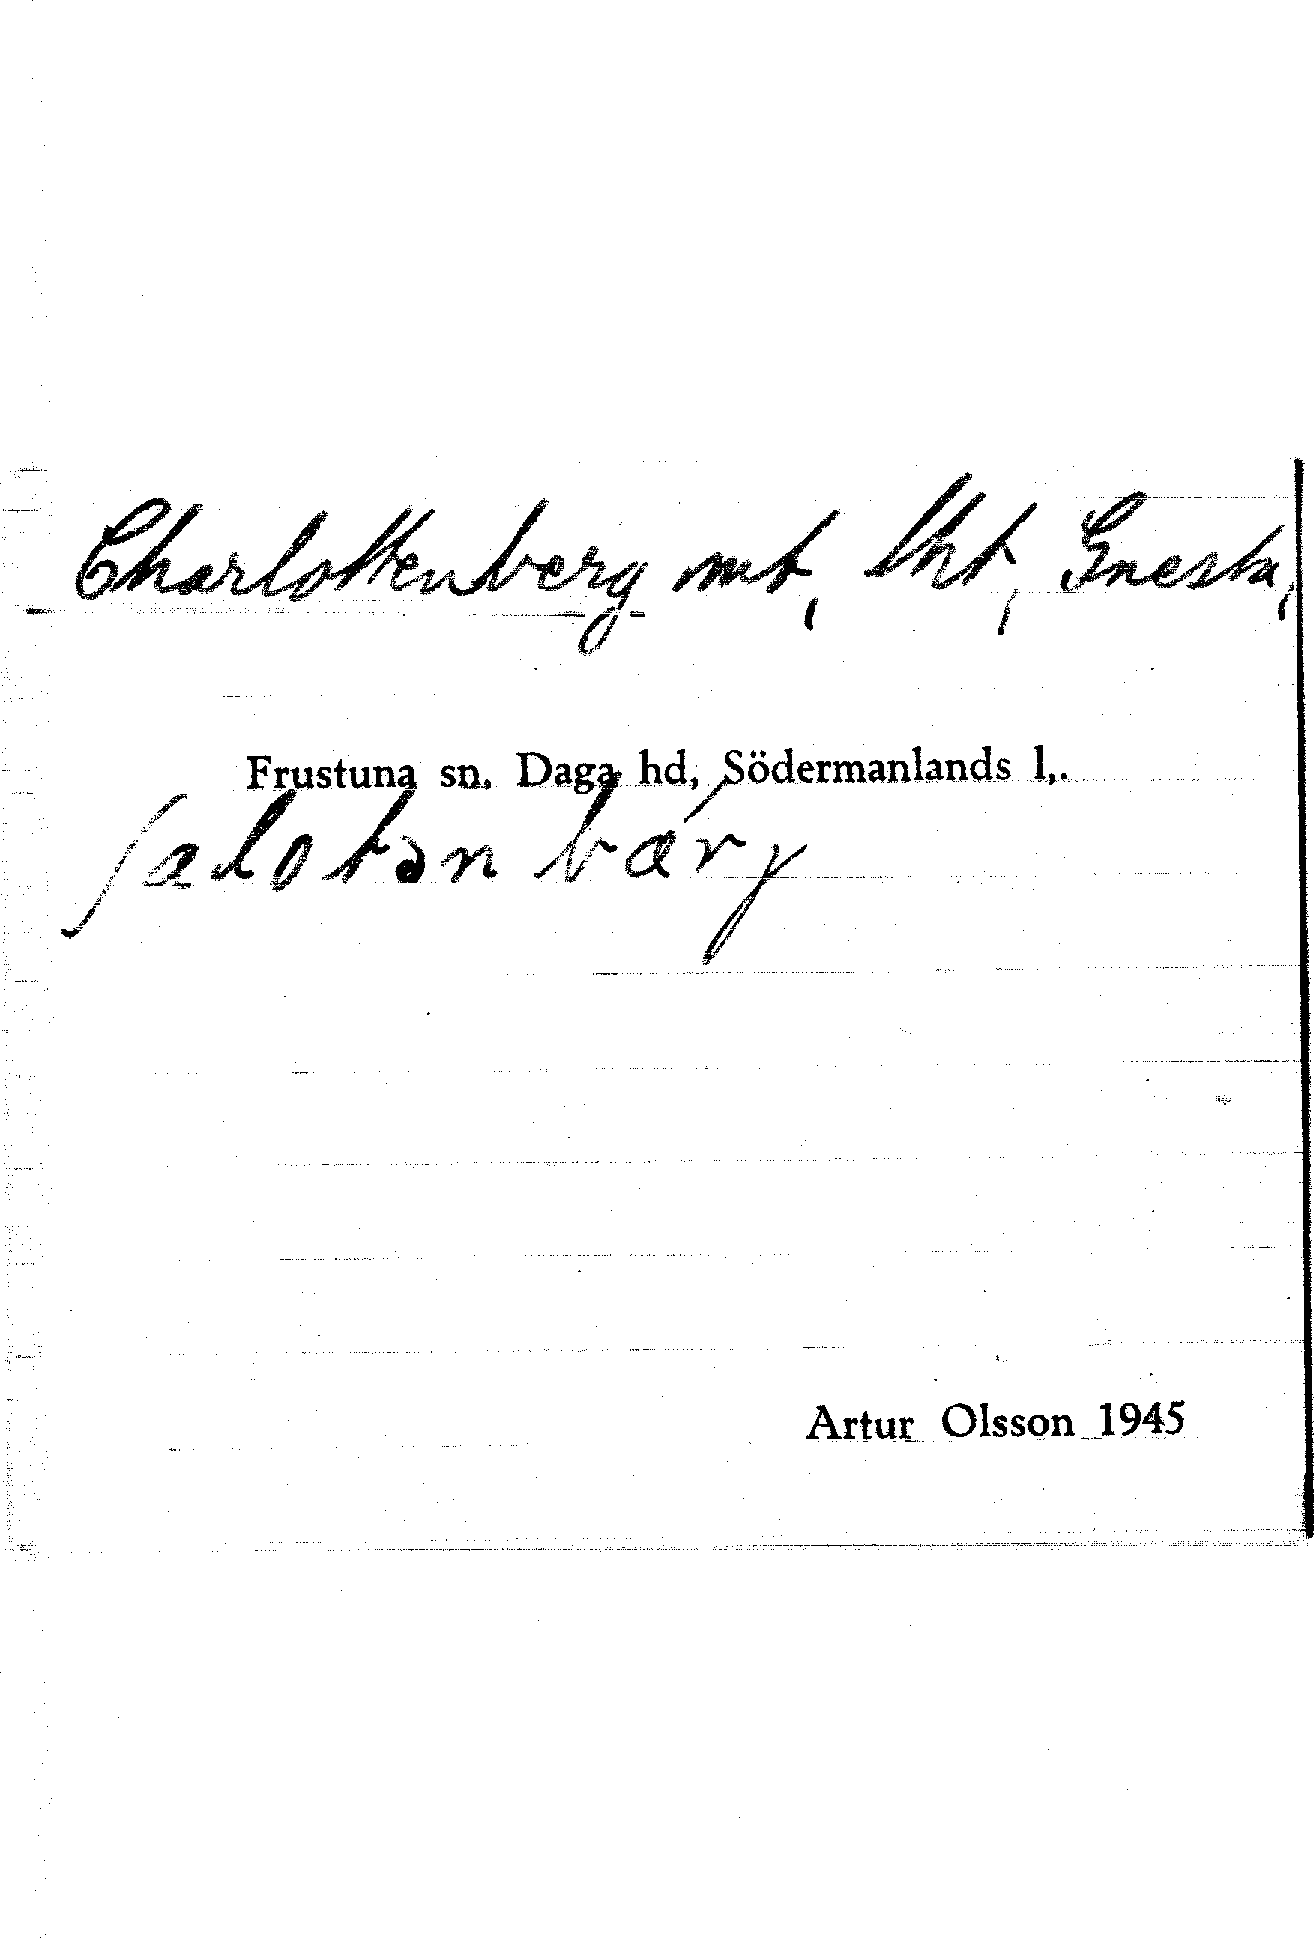 Charlottenberg mt, lht, Gnesta,
Frustuna sn. Daga hd, Södermanlands l.
ʃalotənbærj
Artur Olsson 1945